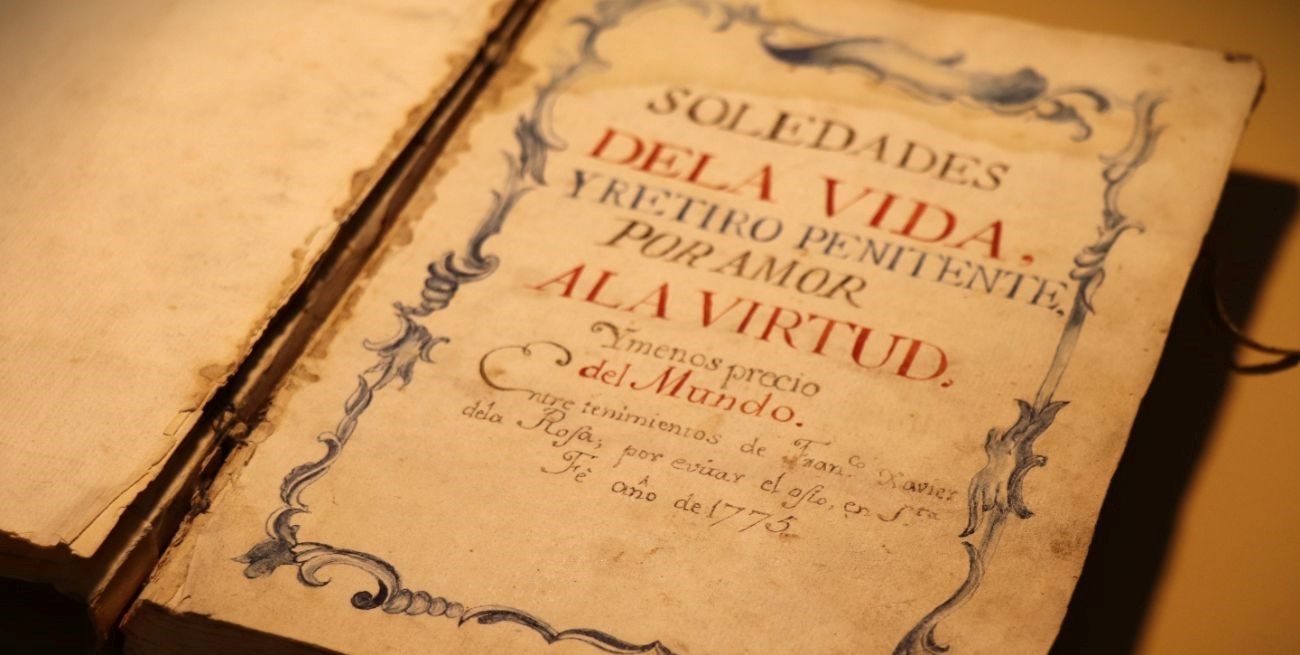 SOLEDADES
DELA VIDA,
Y RETIRO PENITENTE,
POR AMOR
ALA VIRTUD.
Y menos precio
del Mundo.
Entre tenimientos de Fran.co Xavier
dela Roſa; por evitar el oſio, en S.ta
Fê año de 1775